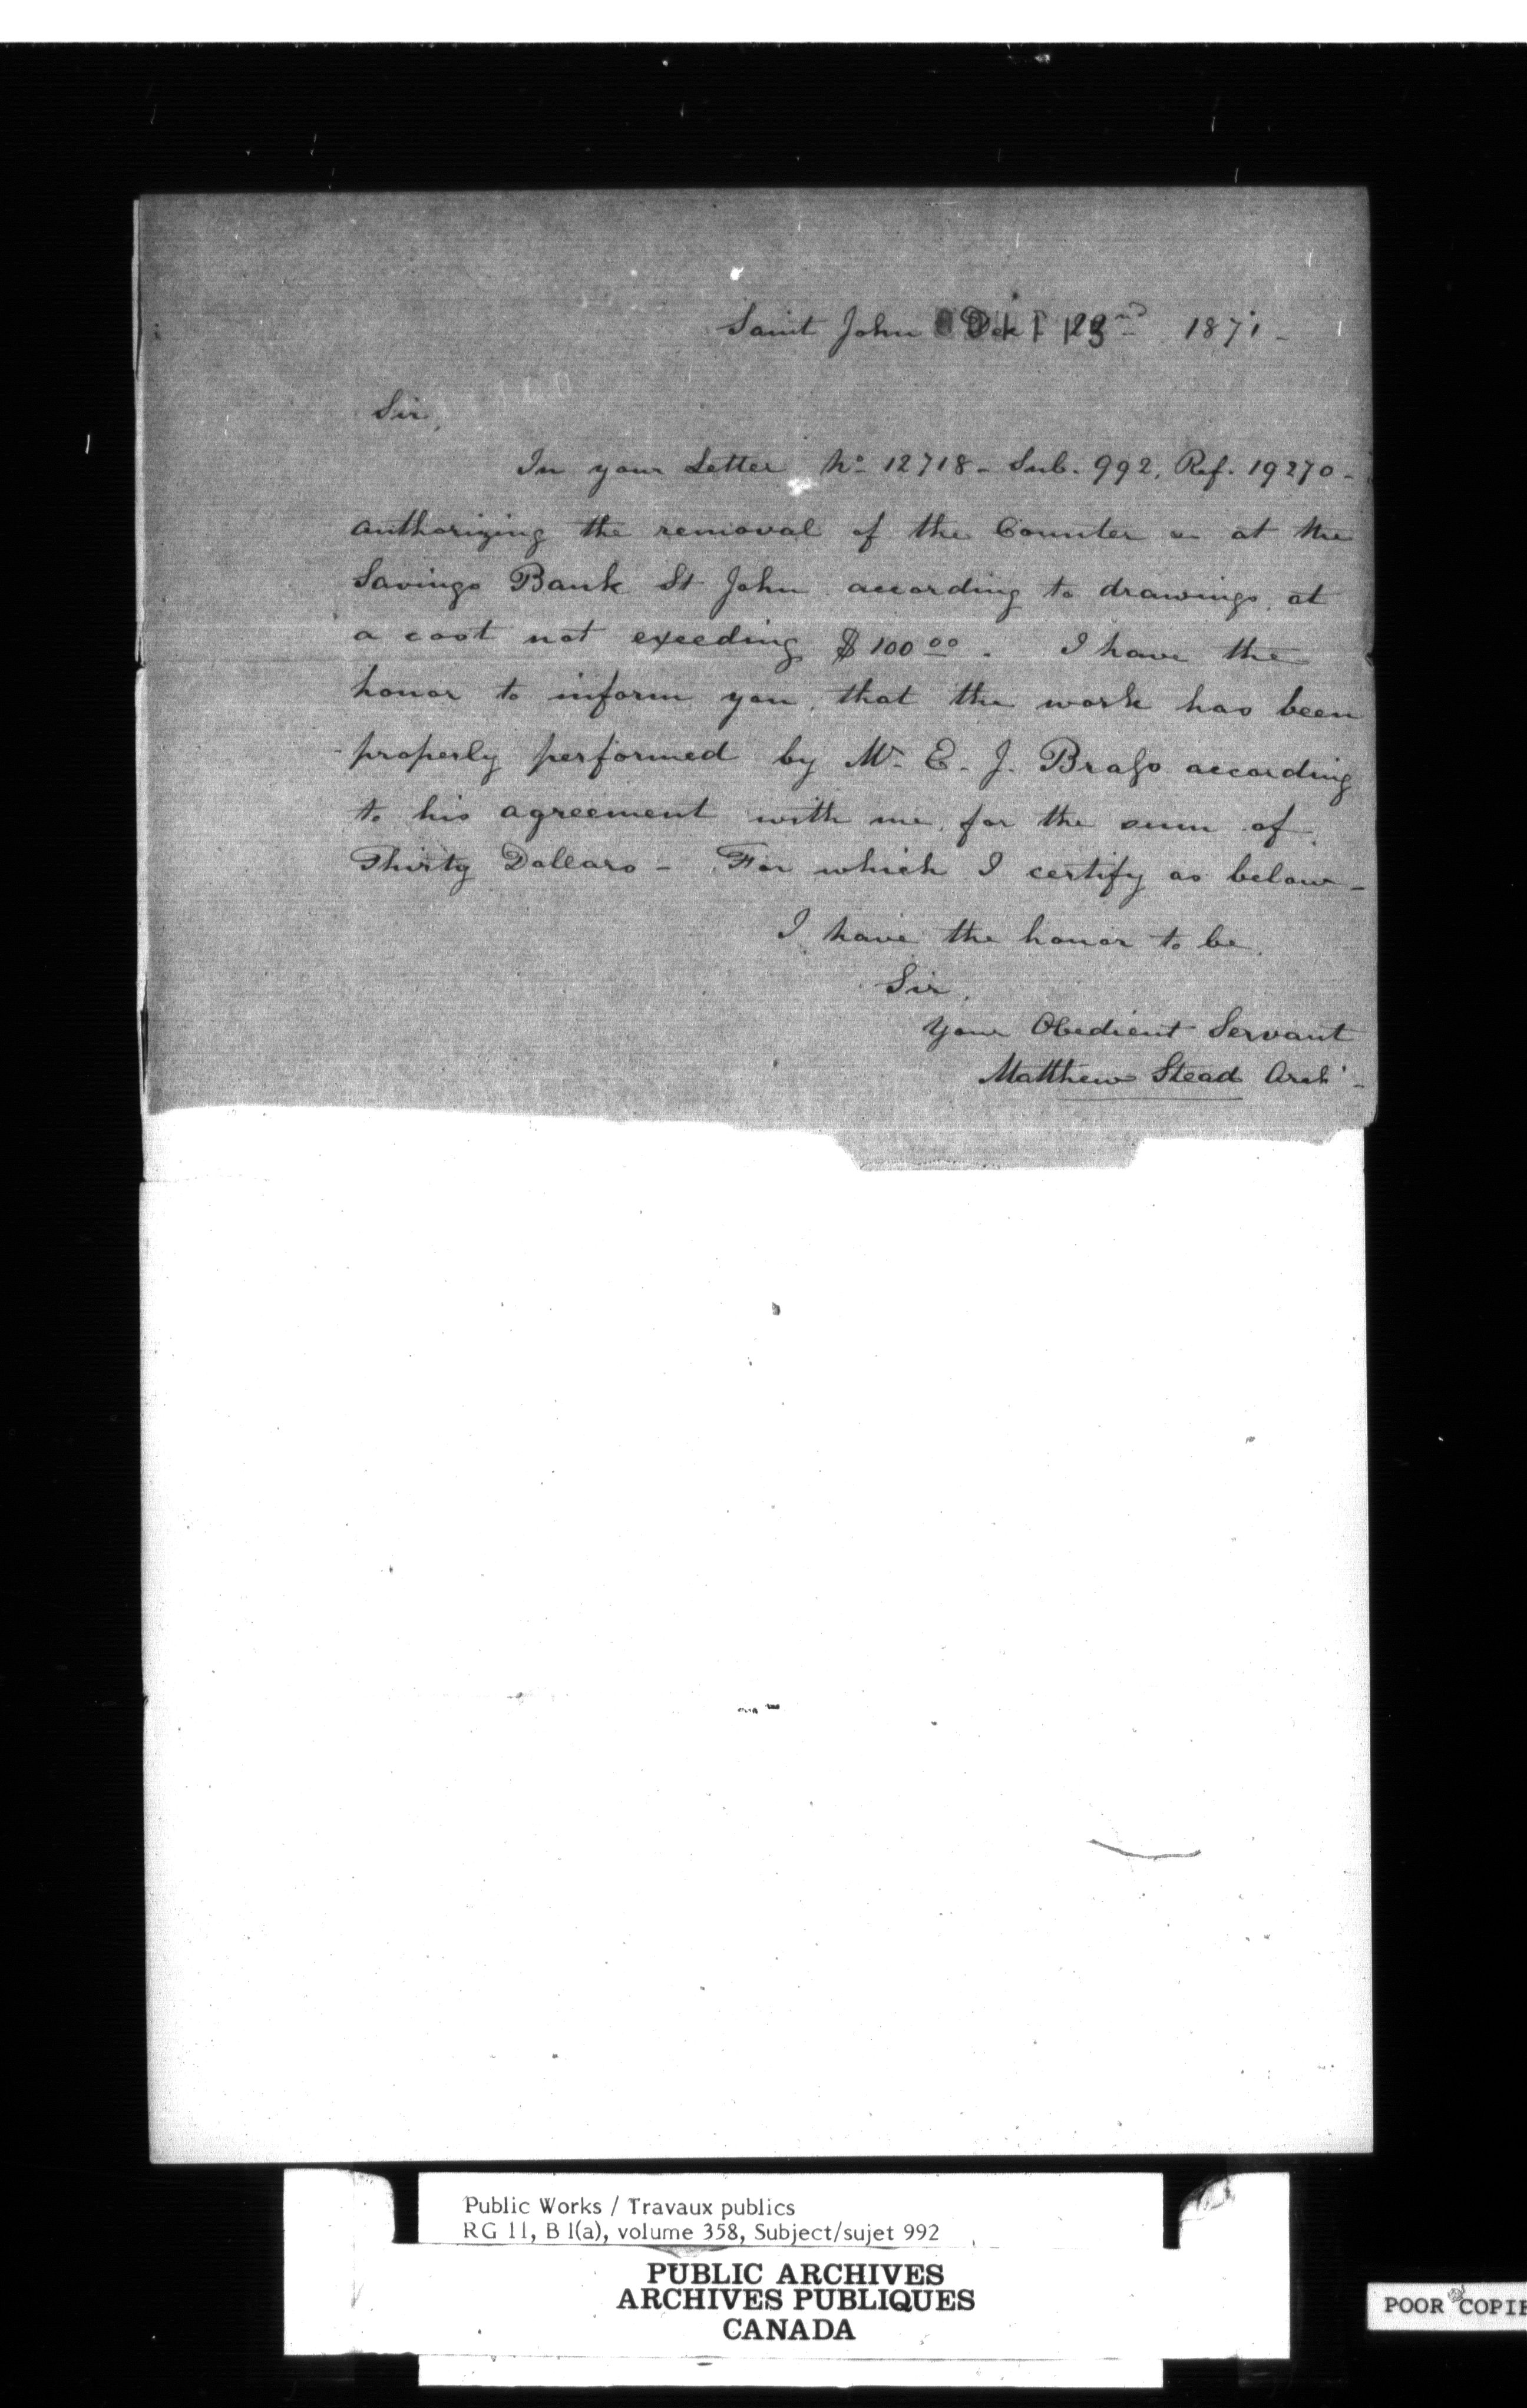 Saint John Dec 23rd 1871-
Sir,
In your Letter No 12718 - Sub. 992, Ref. 19270 -
authorizing the removal of the Counter at the
Savings Bank St John according to drawings, at
a cost not exceeding $100 00. I have the
honor to inform you, that the work has been
properly performed by Mr. E. J. Brass according
to his agreement with me, for the sum of
Thirty Dollars - For which I certify as below -
I have the honor to be,
Sir,
Your Obedient Servant
Matthew Stead Archt -
Public Works / Travaux publics
RG 11, B 1(a), volume 358, Subject/sujet 992
PUBLIC ARCHIVES
ARCHIVES PUBLIQUES
CANADA
POOR COPIE